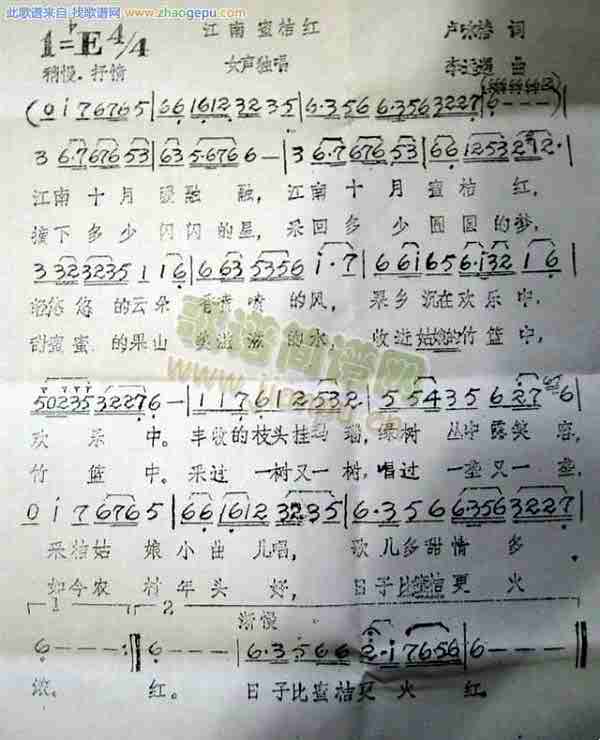 此歌谱来自 找歌谱网
www.zhaogepu.com
江南蜜桔红
1=♭E 4/4
词
稍慢.抒情
女声独唱
曲
(0 i 7 6765|66 1612 3235|6·356 6·3563227|6---)|
3 6·7676 53|63 5·676 6—|3 6·7676 53|66 1253 2 12·|
江南十月暖融融,江南十月蜜桔红,
摘下多少闪闪的星,采回多少圆圆的梦,
3 323235 116|6 63 5356 i·7|66i65 6·i32 16|
悠悠的云朵 喷喷的风, 果乡沉在欢乐中.
甜蜜蜜的果山 美滋滋的水, 收进姑娘的竹篮中,
50235 3227 6—|1176 12532|5543 56 27 6|
欢乐中。丰收的枝头挂玛瑙,绿树丛中露笑容,
竹篮中。采过一树又一树,唱过一垄又一垄,
0 i 7 6765|66 1612 3235|6·356 63563227|
采桔姑娘小曲儿唱, 歌儿多甜情多
如今农村年头好, 日子比蜜桔更火
1 2 渐慢
6---:‖6---|6·3566 2·i 7656|6---‖
浓。 红。 日子比蜜桔更火红.
歌谱简谱网